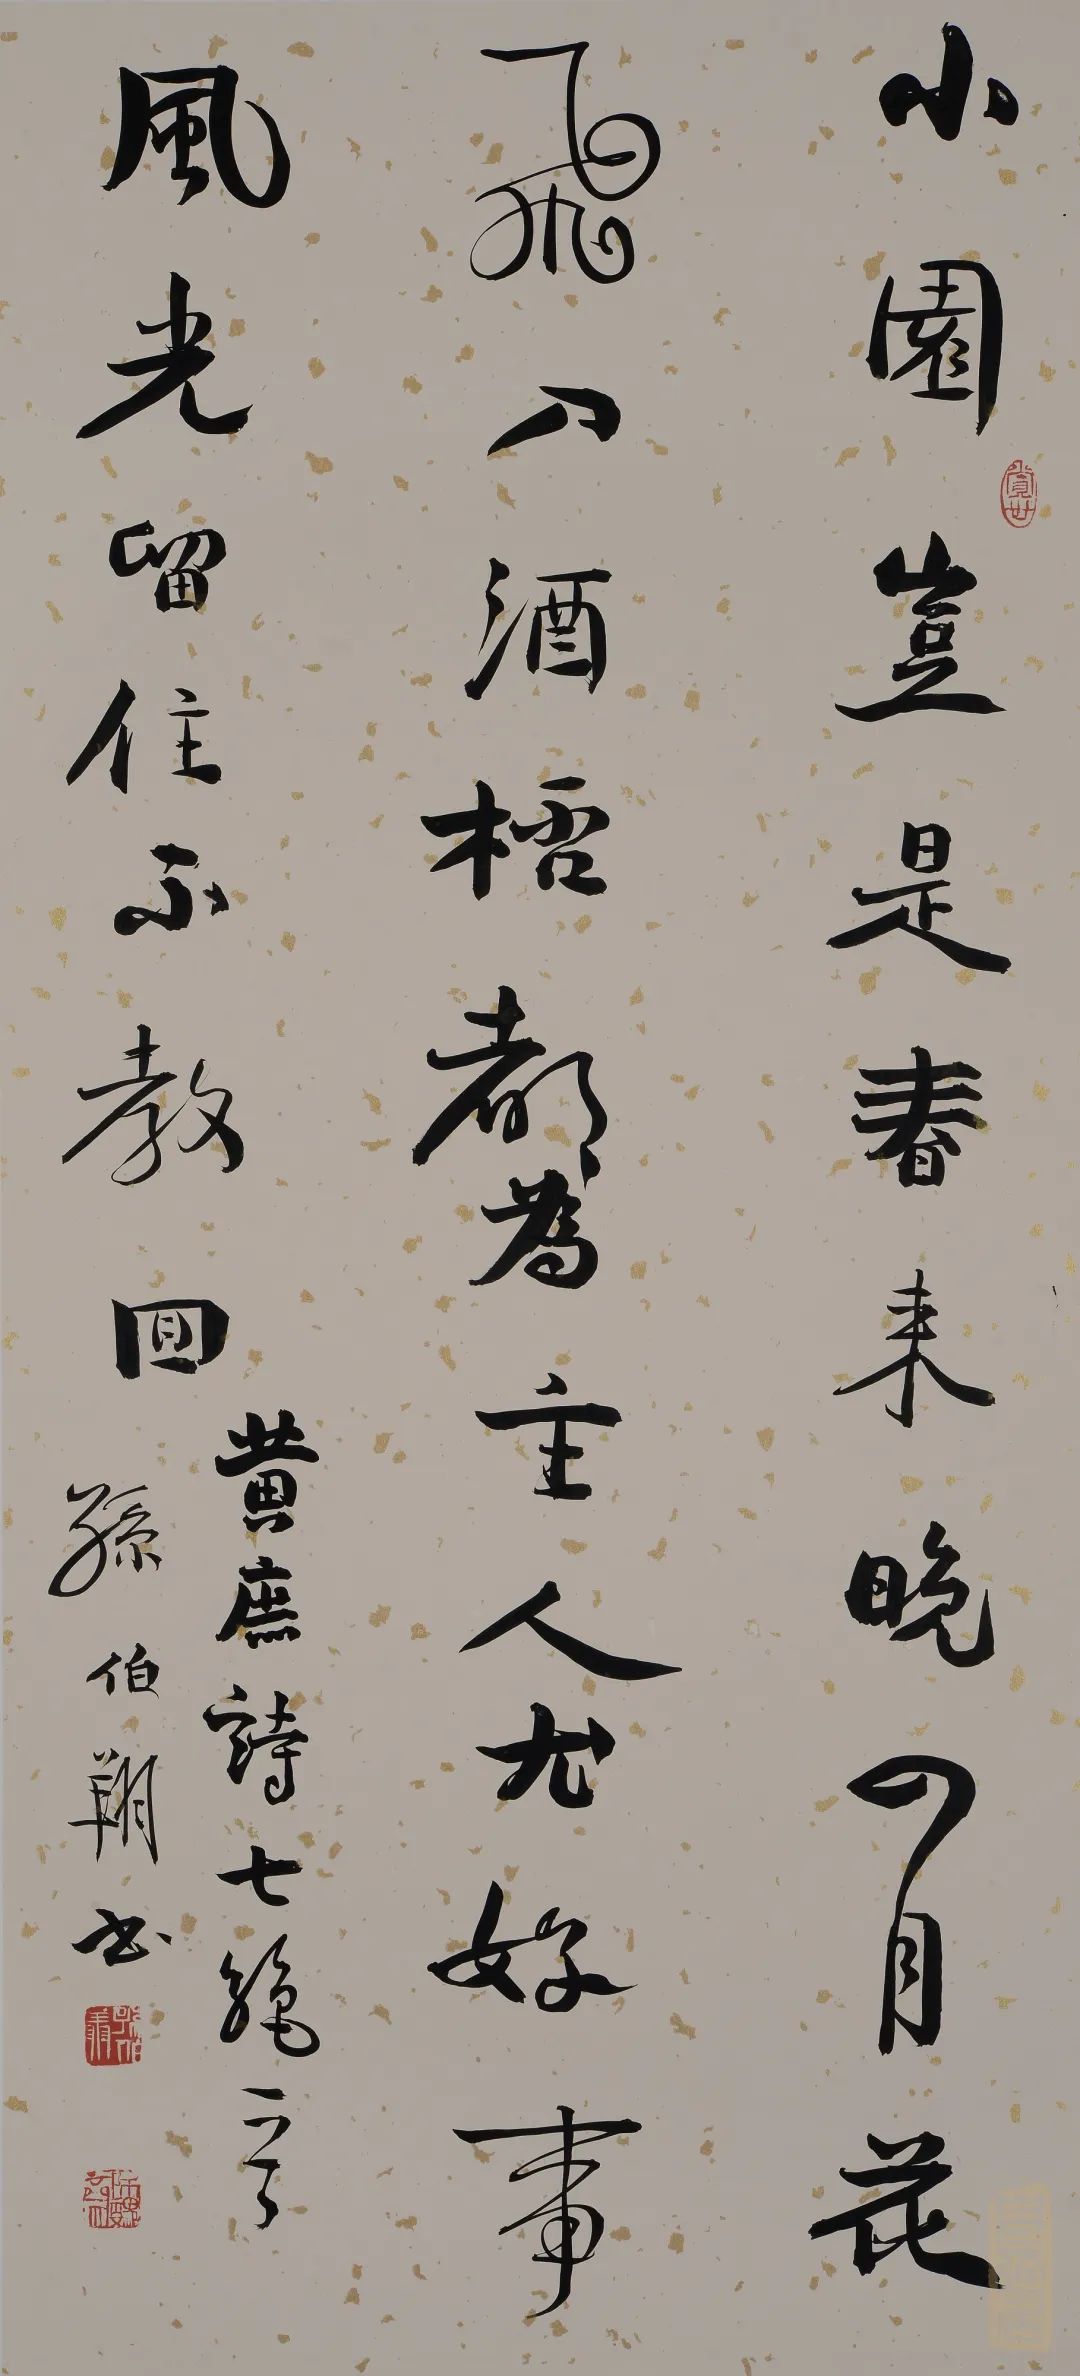 小園豈是春来晚四月花
飛入酒桮都為主人尤好事
風光留住不教回
黄庶詩七絕一首
孫伯翔書